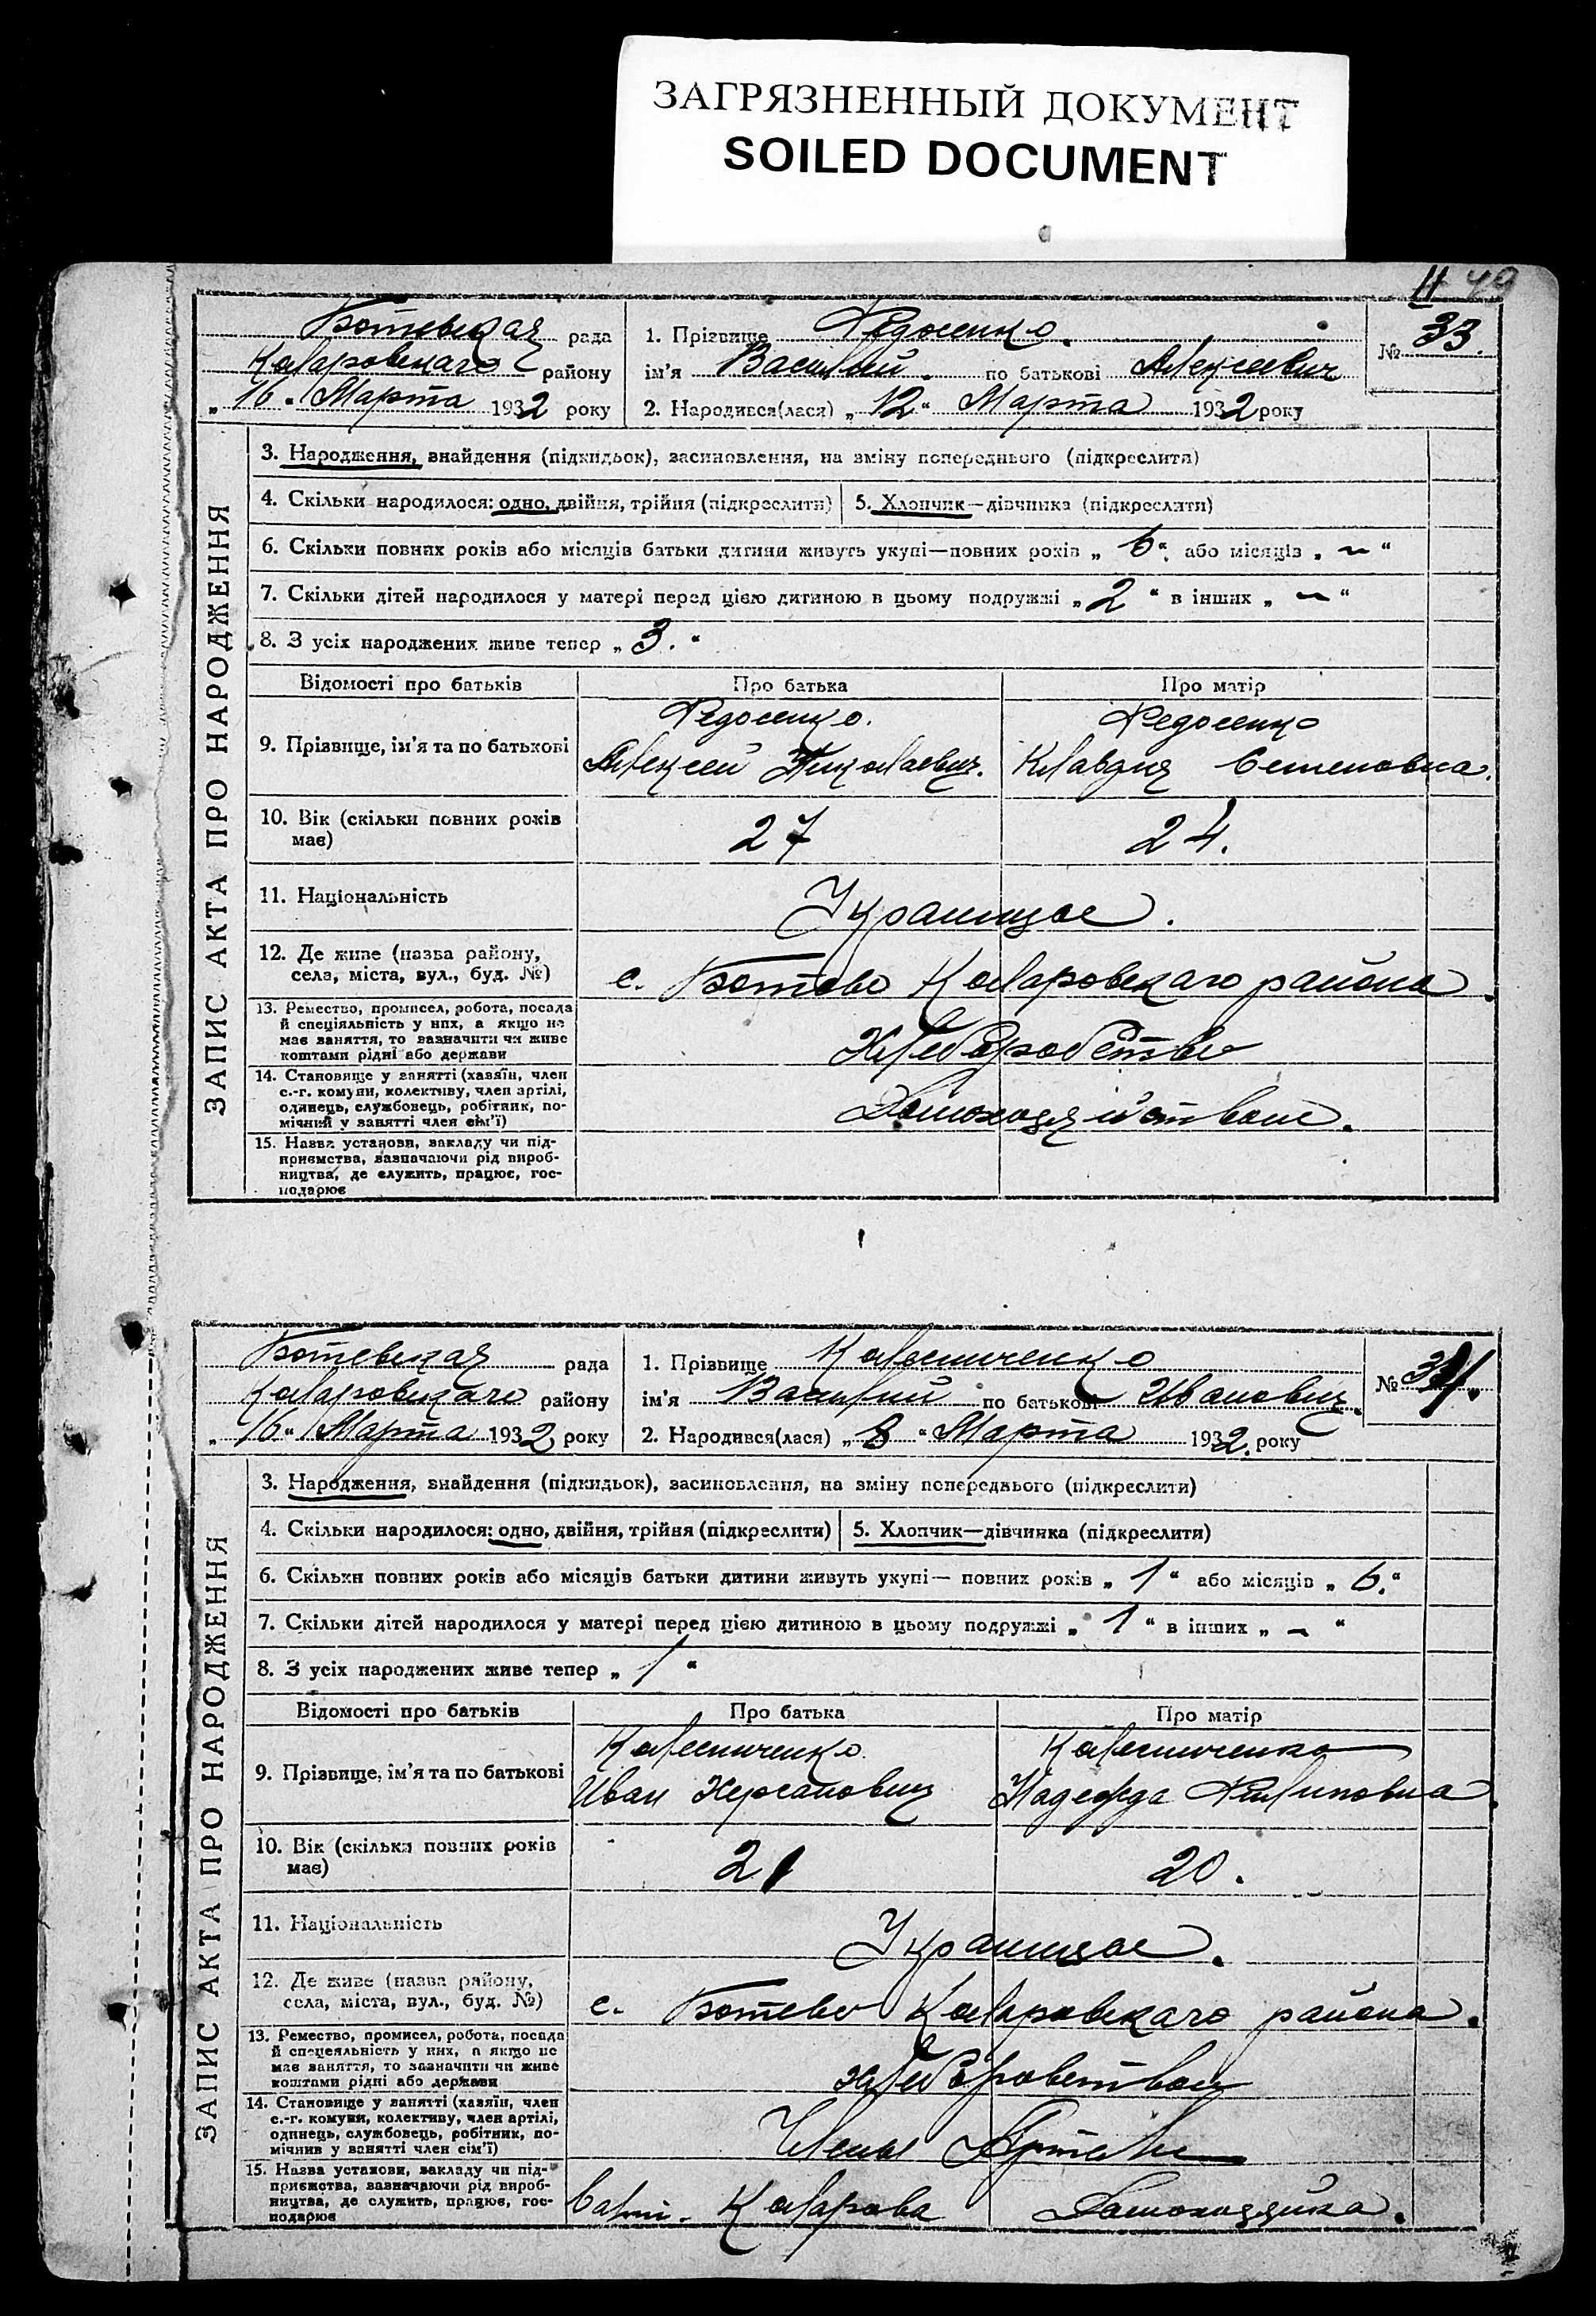 ЗАГРЯЗНЕННЫЙ ДОКУМЕНТ
SOILED DOCUMENT
11 49
Ботевская рада
Коларовскаго району
„16“ Марта 1932 року
1. Прізвище Федосенко.
ім'я Василий. по батькові Алексеевич
2. Народився(лася) „12“ Марта 1932 року
№ 33.
ЗАПИС АКТА ПРО НАРОДЖЕННЯ
3. Народження, знайдення (підкидьок), засиновлення, на зміну попереднього (підкреслити)
4. Скільки народилося: одно, двійня, трійня (підкреслити)
5. Хлопчик—дівчинка (підкреслити)
6. Скільки повних років або місяців батьки дитини живуть укупі—повних років „6“, або місяців „~“
7. Скільки дітей народилося у матері перед цією дитиною в цьому подружжі „2“ в інших „~“
8. З усіх народжених живе тепер „3.“
Відомості про батьків Про батька Про матір
9. Прізвище, ім'я та по батькові
Федосенко. Федосенко
Алексей Николаевич. Клавдия Семеновна.
10. Вік (скільки повних років має)
27 24.
11. Національність
Украинцое.
12. Де живе (назва району, села, міста, вул., буд. №)
с. Ботево Коларовскаго района.
13. Ремество, промисел, робота, посада
й спеціяльність у них, а якщо не
має заняття, то зазначити чи живе
коштами рідні або держави
Хлеборобство
14. Становище у занятті (хазяїн, член
с.-г. комуни, колективу, член артілі,
одинець, службовець, робітник, по-
мічний у занятті член сім'ї)
15. Назва установи, закладу чи під-
приємства, зазначаючи рід вироб-
ництва, де служить, працює, гос-
подарює
Ботевская рада
Коларовскаго району
„16“ Марта 1932 року
1. Прізвище Колесниченко
ім'я Василий по батькові Иванович.
2. Народився(лася) „8“ Марта 1932. року
№ 34.
ЗАПИС АКТА ПРО НАРОДЖЕННЯ
3. Народження, знайдення (підкидьок), засиновлення, на зміну попереднього (підкреслити)
4. Скільки народилося: одно, двійня, трійня (підкреслити)
5. Хлопчик—дівчинка (підкреслити)
6. Скільки повних років або місяців батьки дитини живуть укупі— повних років „1“ або місяців „6.“
7. Скільки дітей народилося у матері перед цією дитиною в цьому подружжі „1“ в інших „~“
8. З усіх народжених живе тепер „1“
Відомості про батьків Про батька Про матір
9. Прізвище, ім'я та по батькові
Колесниченко. Колесниченко
Иван Надежда Филиповна.
10. Вік (скільки повних років має)
21 20.
11. Національність
Украинцое.
12. Де живе (назва району, села, міста, вул., буд. №)
с. Ботево Коларовскаго района.
13. Ремество, промисел, робота, посада
й спецеяльність у них, а якщо не
має заняття, то зазначити чи живе
коштами рідні або держави
14. Становище у занятті (хазяїн, член
с.-г. комуни, колективу, член артілі,
одинець, службовець, робітник, по-
мічнив у занятті член сім'ї)
Члены Артели
15. Назва установи, закладу чи під-
приємства, зазначаючи рід вироб-
ництва, де служить, працює, гос-
подарює
Коларова Домохозяйка.